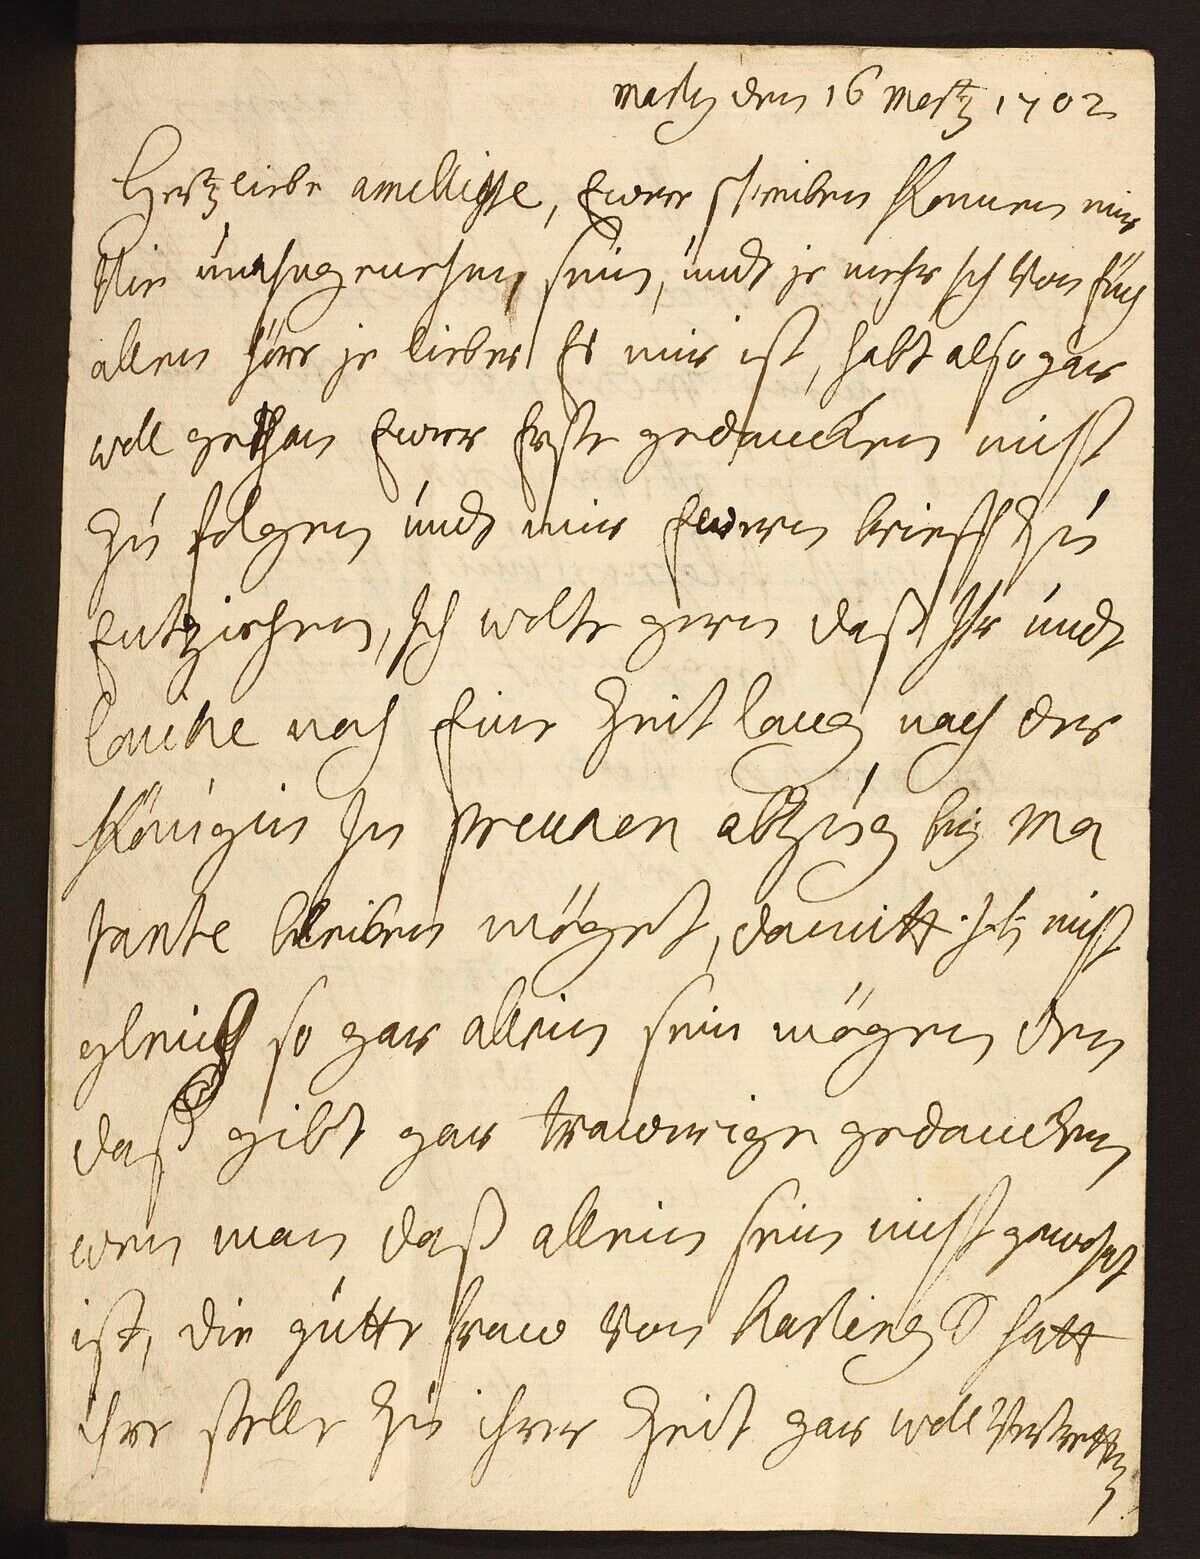 marly den 16 mertz 1702
Hertzliebe amellisse, Ewer schreiben können mir
nie unahngenehm sein, undt je mehr ich von Eüch
allen höre je lieber Es mir ist, habt also gar
woll gethan Ewer Erste gedancken nicht
zu folgen undt mir Ewern brieff zu
Entziehen, Ich wolte gern daß Ihr undt
louise noch Eine zeit lang nach der
Königin In preussen abzug bey ma
tante bleiben möget, damitt I.L. nicht
gleich so gar allein sein mögen den
daß gibt gar trawerige gedancken
wen man daß allein sein nicht gewohnt
ist, die gutte fraw von harling hatt
ihre stelle zu ihrer zeit gar woll vertretten